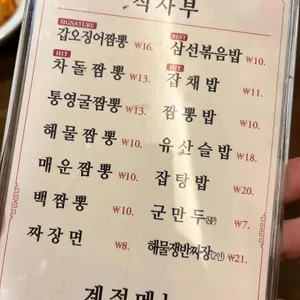 식사부
SIGNATURE
갑오징어짬뽕 ₩16.
BEST
삼선볶음밥 ₩10.
HIT
차돌짬뽕 ₩13.
HIT
잡채밥 ₩11.
통영굴짬뽕 ₩13.
짬뽕밥 ₩10.
해물짬뽕 ₩10.
유산슬밥 ₩18.
매운짬뽕 ₩10.
잡탕밥 ₩20.
백짬뽕 ₩10.
군만두(8P) ₩7.
짜장면 ₩8.
해물쟁반짜장(2인) ₩21.
계절메뉴